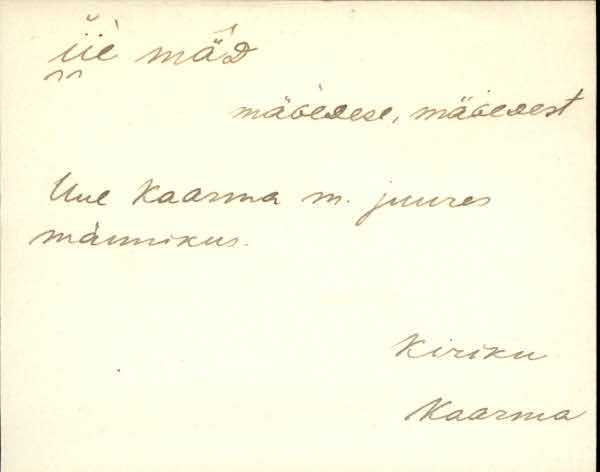 iiè mäD
mäGèDese, mäGeDest
Uue Kaarma m. juures
männikus.
Kiriku
Kaarma